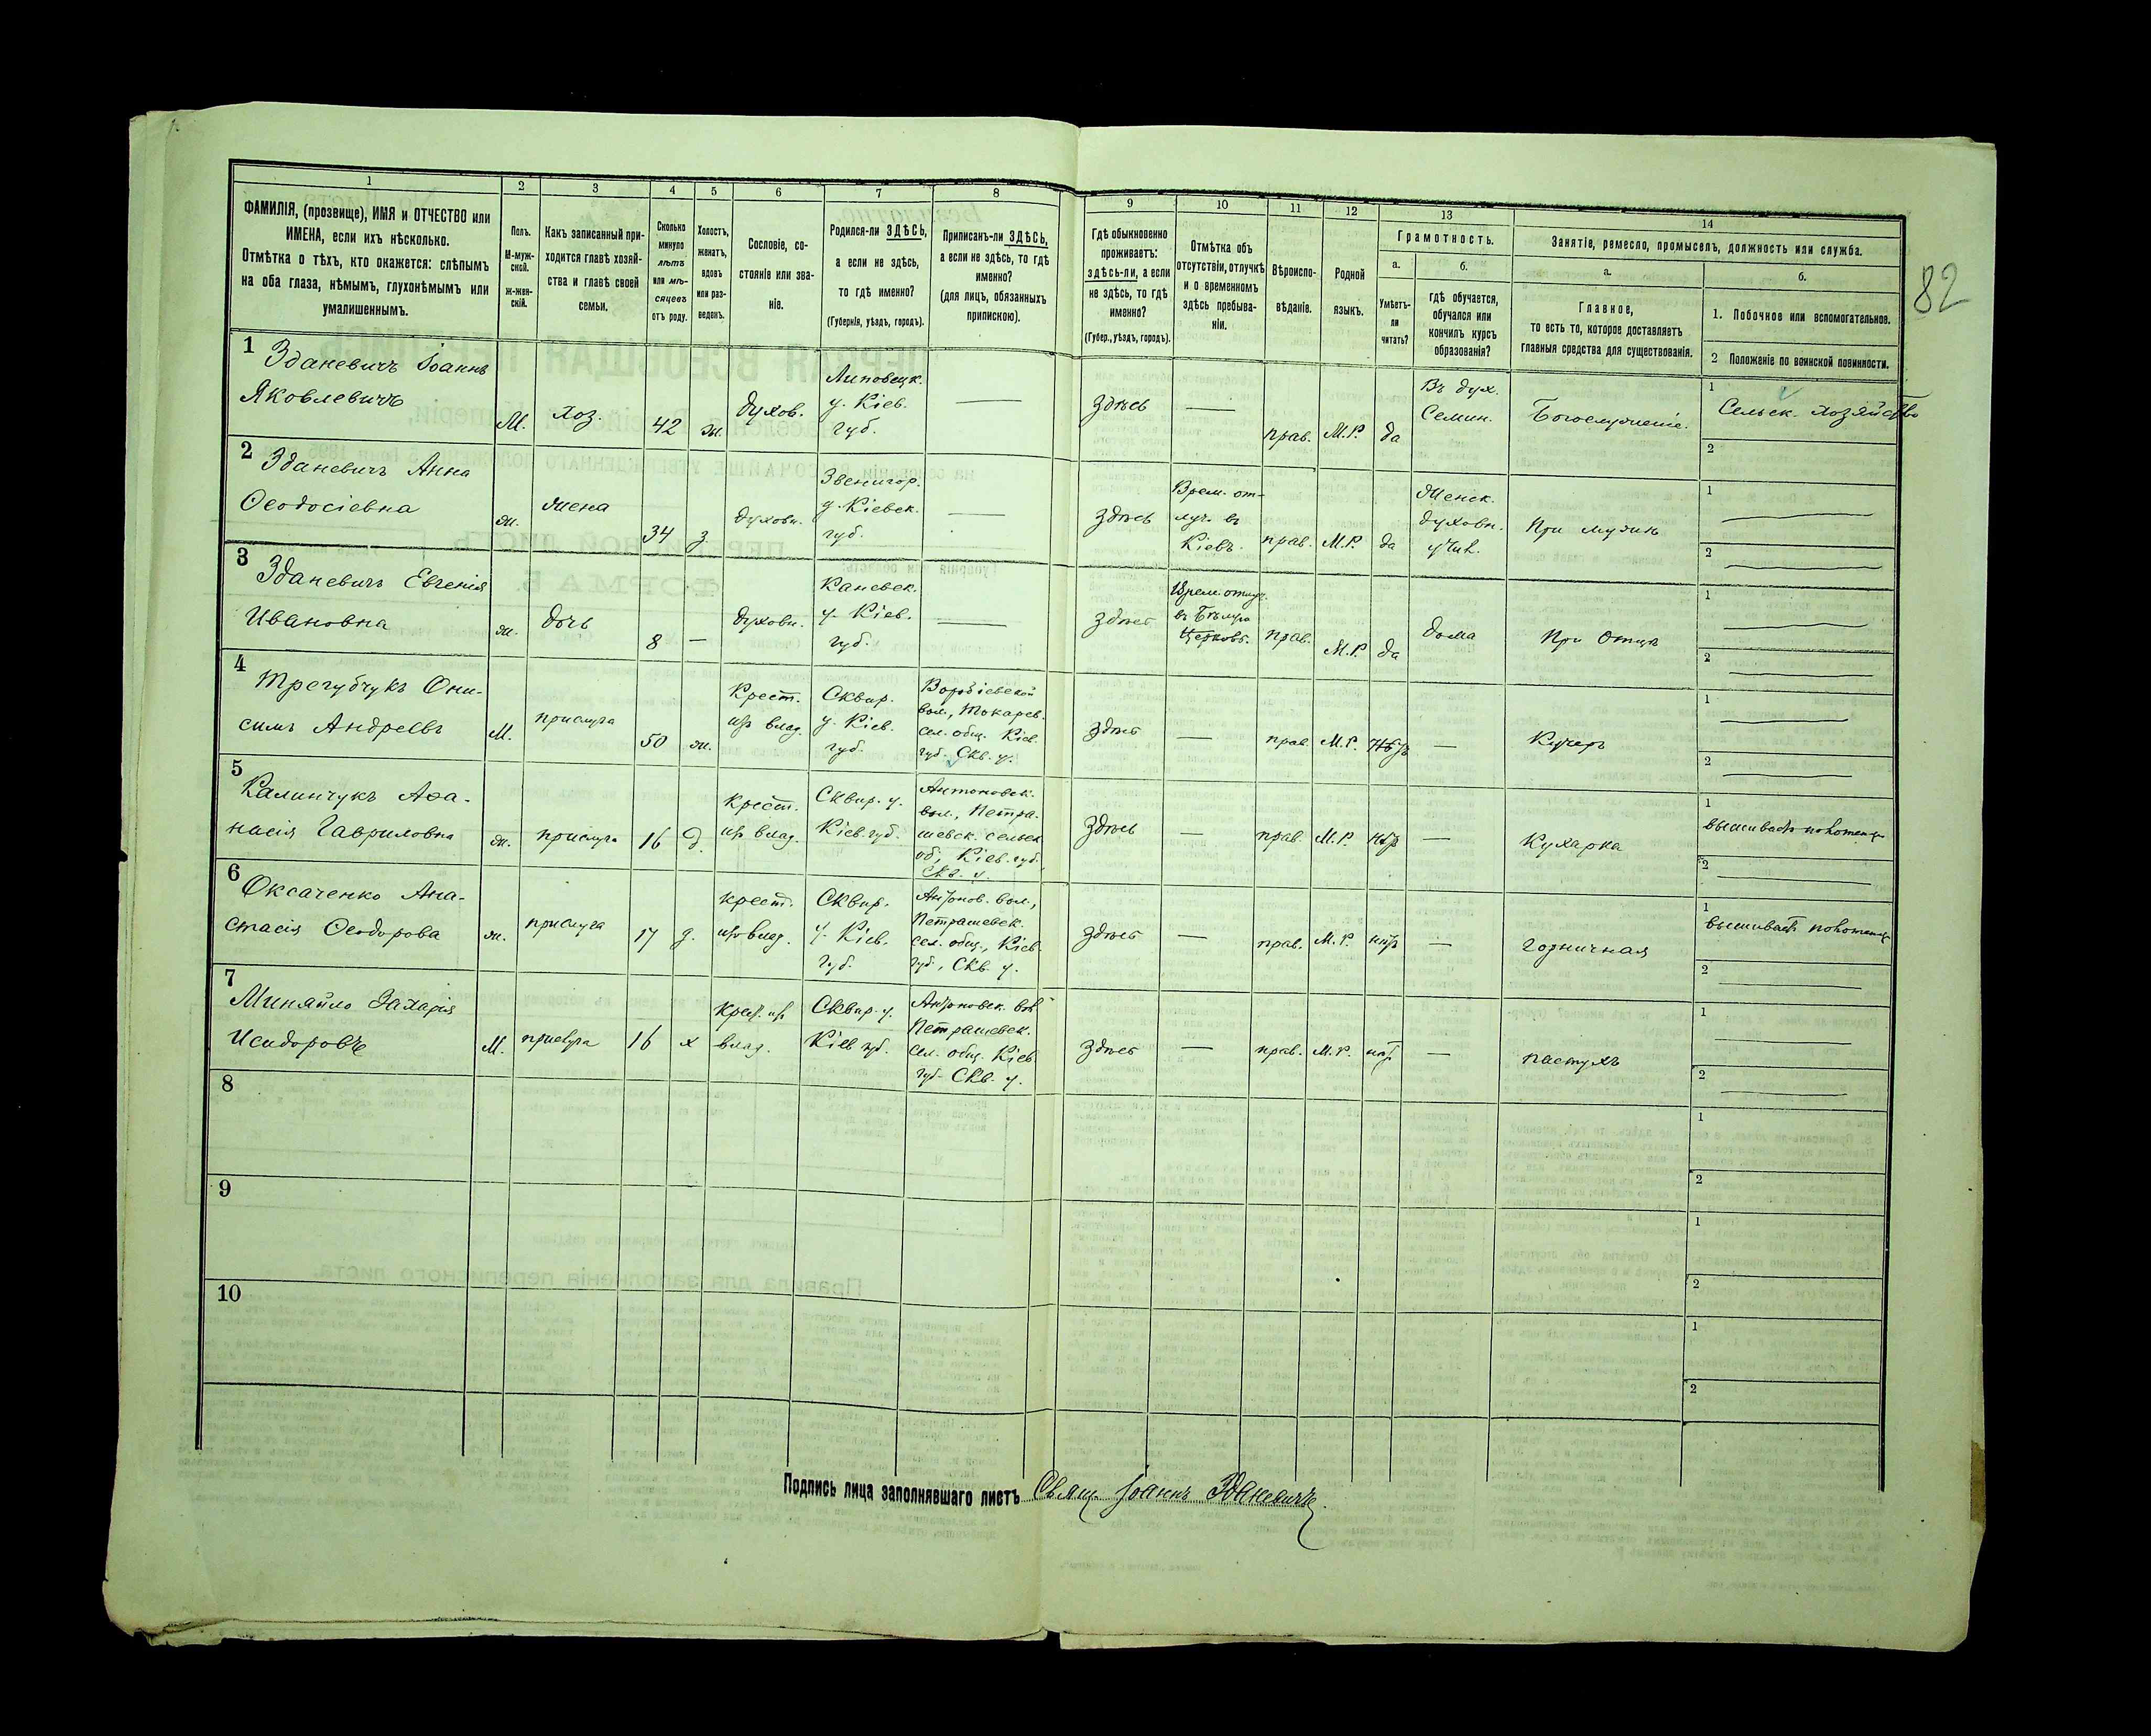 82
1
2
3
4
5
6
7
8
9
10
11
12
13
14
ФАМИЛІЯ, (прозвище), ИМЯ и ОТЧЕСТВО или
ИМЕНА, если ихъ нѣсколько.
Отмѣтка о тѣхъ, кто окажется: слѣпымъ
на оба глаза, нѣмымъ, глухонѣмымъ или
умалишеннымъ.
Полъ.
М-муж-
ской.
Ж-жен-
скій.
Какъ записанный при-
ходится главѣ хозяй-
ства и главѣ своей
семьи.
Сколько
минуло
лѣтъ
или мѣ-
сяцевъ
отъ роду.
Холостъ,
женатъ,
вдовъ
или раз-
веденъ.
Сословіе, со-
стояніе или зва-
ніе.
Родился-ли ЗДѢСЬ,
а если не здѣсь,
то гдѣ именно?
(Губернія, уѣздъ, городъ).
Приписанъ-ли ЗДѢСЬ,
а если не здѣсь, то гдѣ
именно?
(для лицъ, обязанныхъ
припискою).
Гдѣ обыкновенно
проживаетъ:
здѣсь-ли, а если
не здѣсь, то гдѣ
именно?
(Губер., уѣздъ, городъ).
Отмѣтка объ
отсутствіи, отлучкѣ
и о временномъ
здѣсь пребыва-
ніи.
Вѣроиспо-
вѣданіе.
Родной
языкъ.
Грамотность.
а.
Умѣетъ-
ли
читать?
б.
гдѣ обучается,
обучался или
кончилъ курсъ
образованія?
Занятіе, ремесло, промыселъ, должность или служба.
а.
Главное,
то есть то, которое доставляетъ
главныя средства для существованія.
б.
1. Побочное или вспомогательное.
2 Положеніе по воинской повинности.
1
Зданевичъ Іоаннъ
Яковлевичъ
М.
хоз.
42
ж.
духов.
Липовецк.
у. Кіев.
губ.
здѣсь
прав.
М.Р.
да
Въ дух.
Семин.
Богослуженіе.
1
Сельск. хозяйство
2
2
Зданевичъ Анна
Ѳеодосіевна
ж.
жена
34
з.
духовн.
Звенигор.
у. Кіевск.
губ.
здѣсь
Врем. от-
луч. въ
Кіевъ.
прав.
М.Р.
да
Женск.
духовн.
учил.
При мужѣ
1
2
3
Зданевичъ Евгенія
Ивановна
ж.
дочь
8
духовн.
Каневск.
у. Кіев.
губ.
здѣсь
Врем. отлуч.
въ Бѣлую
Церковь.
прав.
М.Р.
да
дома
При отцѣ
1
2
4
Трегубчукъ Они-
симъ Андреевъ
М.
прислуга
50
ж.
Крест.
изъ влад.
Сквир.
у. Кіев.
губ.
вол., Токарев.
сел. общ. Кіев.
губ. Скв. у.
здѣсь
прав.
М.Р.
нѣтъ
Кучеръ
1
2
5
Калинчукъ Аѳа-
насія Гавриловна
ж.
прислуга
16
д.
Крест.
изъ влад.
Сквир. у.
Кіев. губ.
Антоновск.
вол., Петра-
шевск. сельск.
об., Кіев. губ.
Скв. у.
здѣсь
прав.
М.Р.
нѣтъ
Кухарка
1
вышиваетъ полотенца
2
6
Оксаченко Ана-
стасія Ѳеодорова
ж.
прислуга
17
д.
крест.
изъ влад.
Сквир.
у. Кіев.
губ.
Антонов. вол.,
Петрашевск.
сел. общ., Кіев.
губ., Скв. у.
здѣсь
прав.
М.Р.
нѣтъ
горничная
1
вышиваетъ полотенца
2
7
Миняйло Захарія
Исидоровъ
М.
прислуга
16
х
Крест. изъ
влад.
Сквир. у.
Кіев губ.
Антоновск. вол.
Петрашевск.
сел. общ. Кіев
губ. Скв. у.
здѣсь
прав.
М.Р.
нѣтъ
пастухъ
1
2
8
1
2
9
1
2
10
1
2
Подпись лица заполнявшаго листъ Свящ. Іоаннъ Зданевичъ.